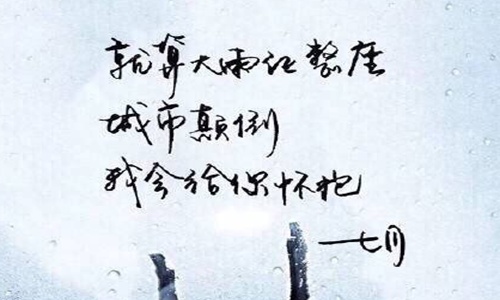 就算大雨让整座
城市颠倒
我会给你怀抱
—七月